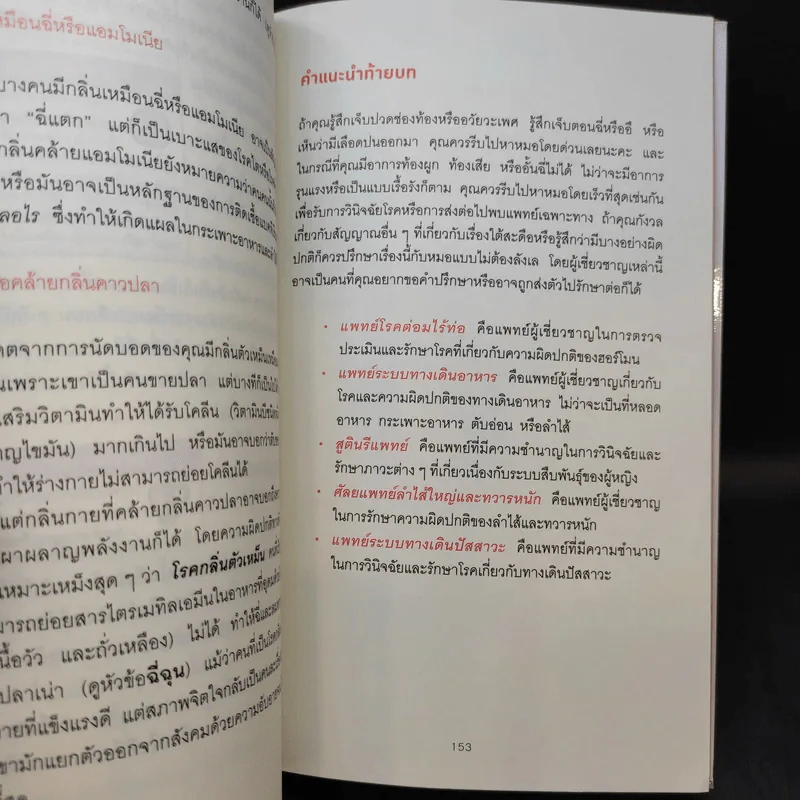 หมือนฉี่หรือแอมโมเนีย
บางคนมีกลิ่นเหมือนฉี่หรือแอมโมเนีย
"ฉี่แตก" แต่ก็เป็นเบาะแสของโรค
กลิ่นคล้ายแอมโมเนียยังหมายความว่า
หรือมันอาจเป็นหลักฐานของการติดเชื้อ
ลอไร ซึ่งทำให้เกิดแผลในกระเพาะอาหาร
อคล้ายกลิ่นคาวปลา
ตจากการนัดบอดของคุณมีกลิ่นตัวเหม็น
นเพราะเขาเป็นคนขายปลา แต่บางที
เสริมวิตามินทำให้ได้รับโคลีน
ญไขมัน) มากเกินไป หรือมันอาจบอกว่า
ทำให้ร่างกายไม่สามารถย่อยโคลีนได้
แต่กลิ่นกายที่คล้ายกลิ่นคาวปลาอาจ
ผาผลาญพลังงานก็ได้ โดยความผิดปกติ
เหมาะเหม็งสุด ๆ ว่า โรคกลิ่นตัวเหม็น
มารถย่อยสารไตรเมทิลเอมีนในอาหารที่
นื้อวัว และถั่วเหลือง) ไม่ได้ ทำให้
ปลาเน่า (ดูหัวข้อฉี่ฉุน) แม้ว่าคนที่เป็นโรค
ายที่แข็งแรงดี แต่สภาพจิตใจกลับเป็น
ขามักแยกตัวออกจากสังคมด้วยความ
คำแนะนำท้ายบท
ถ้าคุณรู้สึกเจ็บปวดช่องท้องหรืออวัยวะเพศ รู้สึกเจ็บตอนฉี่หรืออึ หรือ
เห็นว่ามีเลือดปนออกมา คุณควรรีบไปหาหมอโดยด่วนเลยนะคะ และ
ในกรณีที่คุณมีอาการท้องผูก ท้องเสีย หรืออั้นฉี่ไม่ได้ ไม่ว่าจะมีอาการ
รุนแรงหรือเป็นแบบเรื้อรังก็ตาม คุณควรรีบไปหาหมอโดยเร็วที่สุดเช่นกัน
เพื่อรับการวินิจฉัยโรคหรือการส่งต่อไปพบแพทย์เฉพาะทาง ถ้าคุณกังวล
เกี่ยวกับสัญญาณอื่น ๆ ที่เกี่ยวกับเรื่องใต้สะดือหรือรู้สึกว่ามีบางอย่างผิด
ปกติก็ควรปรึกษาเรื่องนี้กับหมอแบบไม่ต้องลังเล โดยผู้เชี่ยวชาญเหล่านี้
อาจเป็นคนที่คุณอยากขอคำปรึกษาหรืออาจถูกส่งตัวไปรักษาต่อก็ได้
• แพทย์โรคต่อมไร้ท่อ คือแพทย์ผู้เชี่ยวชาญในการตรวจ
ประเมินและรักษาโรคที่เกี่ยวกับความผิดปกติของฮอร์โมน
• แพทย์ระบบทางเดินอาหาร คือแพทย์ผู้เชี่ยวชาญเกี่ยวกับ
โรคและความผิดปกติของทางเดินอาหาร ไม่ว่าจะเป็นที่หลอด
อาหาร กระเพาะอาหาร ตับอ่อน หรือลำไส้
• สูตินรีแพทย์ คือแพทย์ที่มีความชำนาญในการวินิจฉัยและ
รักษาภาวะต่าง ๆ ที่เกี่ยวเนื่องกับระบบสืบพันธุ์ของผู้หญิง
• ศัลยแพทย์ลำไส้ใหญ่และทวารหนัก คือแพทย์ผู้เชี่ยวชาญ
ในการรักษาความผิดปกติของลำไส้และทวารหนัก
• แพทย์ระบบทางเดินปัสสาวะ คือแพทย์ที่มีความชำนาญ
ในการวินิจฉัยและรักษาโรคเกี่ยวกับทางเดินปัสสาวะ
153